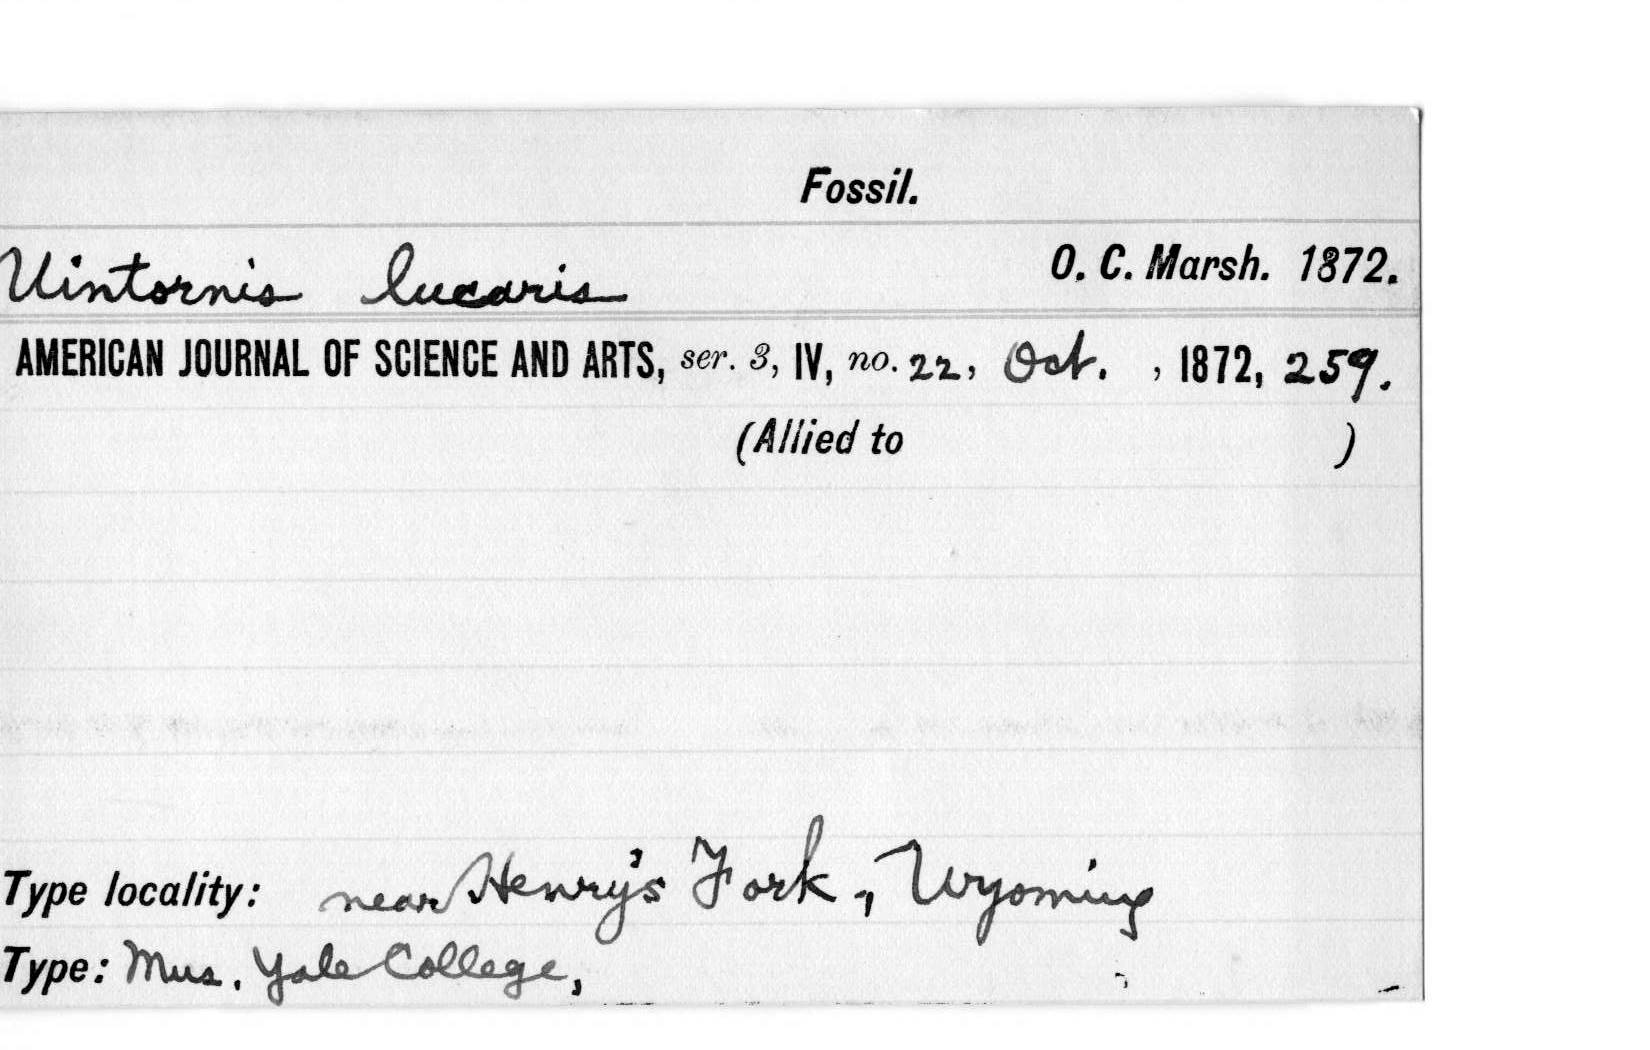 Fossil.
Uintornis lucaris O. C. Marsh. 1872.
AMERICAN JOURNAL OF SCIENCE AND ARTS, ser. 3, IV, no. 22, Oct. , 1872, 259.
(Allied to )
Type locality: near Henry's Fork, Wyoming
Type: Mus. Yale College,